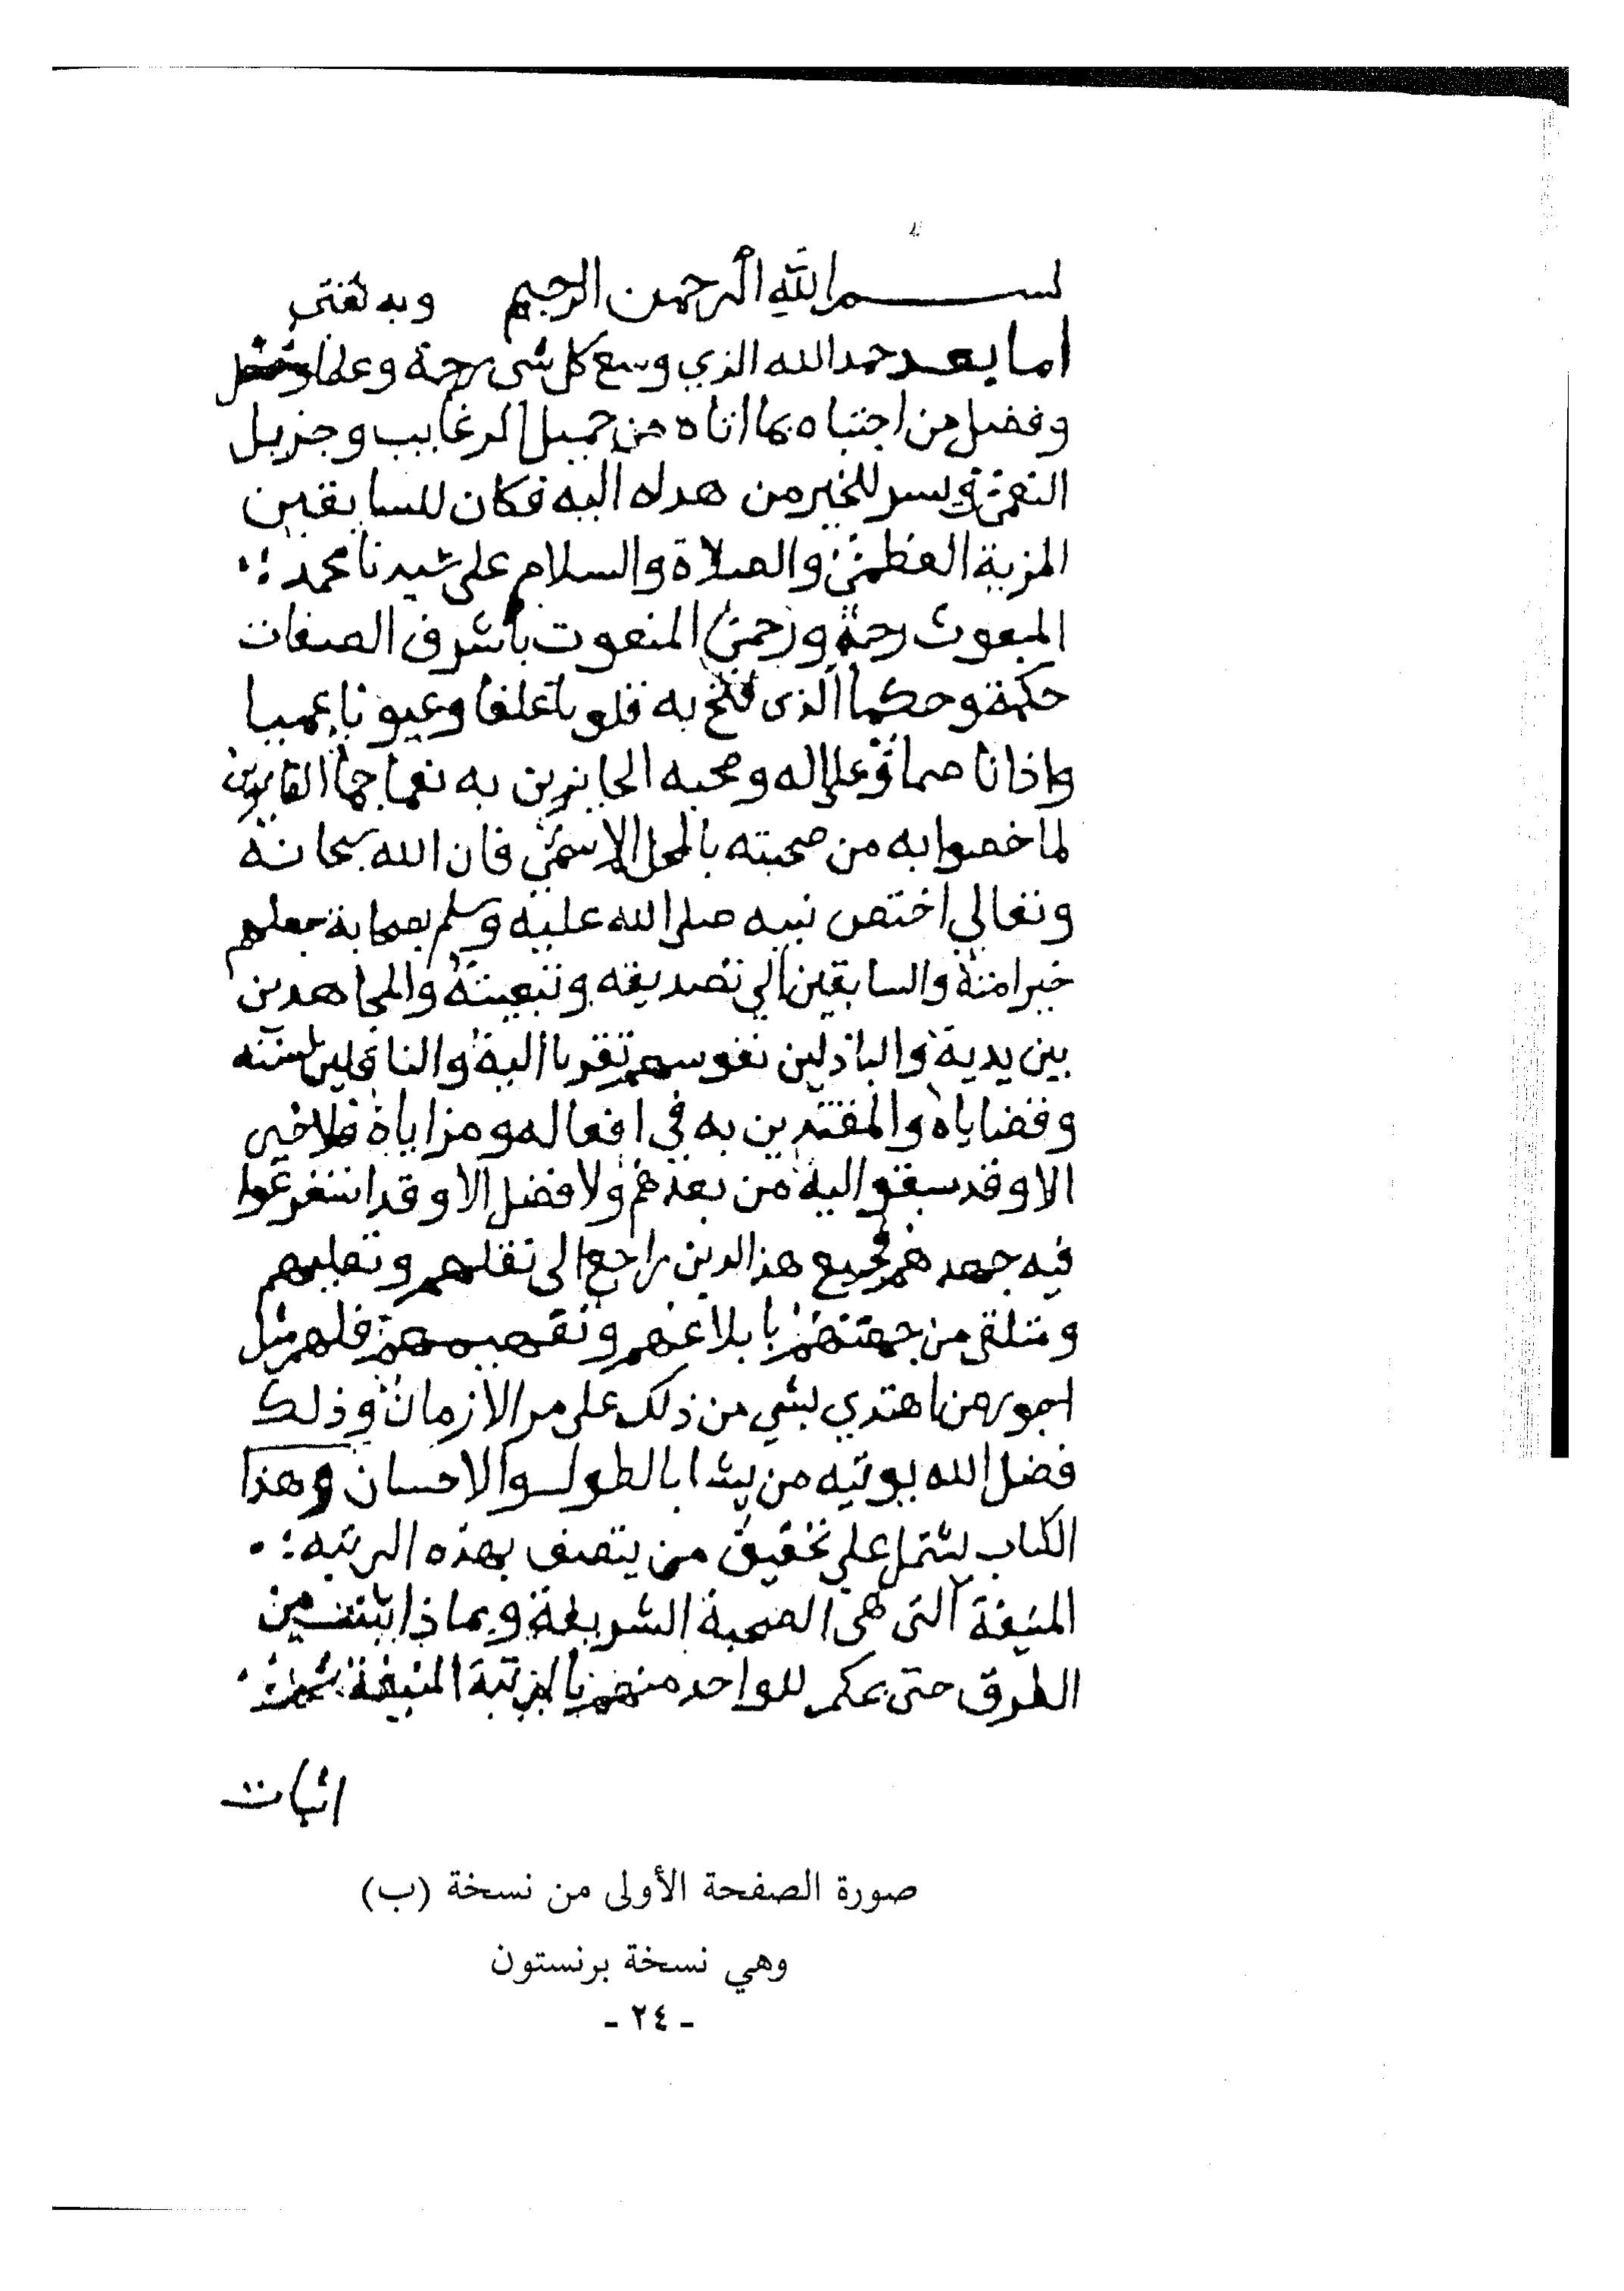 بسم الله الرحمن الرحيم وبه ثقتي
اما بعد حمد الله الذي وسع كل شي رحمة وعلما
وفضل من اجتباه بما اتاه من جميل الرغايب وجزيل
النعمى ويسر للخير من هداه اليه فكان للسابقين
المزية العظمى والصلاة والسلام على سيدنا محمد
المبعوث رحمة ورحمى المنعوت بأشرف الصفات
حكمة وحكما الذى فتح به قلوبا غلفا وعيونا عميا
واذانا صما وعلى اله وصحبه الحايزين به نعما جما الفايزين
لما خصوا به من صحبته بالمحل الاسمى فان الله سبحانه
وتعالي اختص نبيه صلى الله عليه وسلم بصحابة جعلهم
خير امته والسابقين الي تصديقه وتبعيته والمجاهدين
بين يديه والباذلين نفوسهم تقربا اليه والناقلين لسننه
وقضاياه والمقتدين به في افعاله ومزاياه فلا خير
الا وقد سبقوا اليه من بعدهم ولا فضل الا وقد استفرغوا
فيه جهدهم فجميع هذا الدين راجع الى نقلهم وتعليمهم
ومتلقى من جهتهم بابلاغهم وتفهيمهم فلهم مثل
اجور من اهتدي بشي من ذلك على مر الازمان وذلك
فضل الله يوتيه من يشا بالطول والاحسان وهذا
الكتاب يشتمل على تحقيق من يتصف بهذه الرتبه
المنيفة التى هى الصحبة الشريفة وبماذا يثبت من
الطرق حتى يحكم للواحد منهم بالرتبة المنيفة ثمت
اثبات
صورة الصفحة الأولى من نسخة (ب)
وهي نسخة برنستون
- ٢٤ -